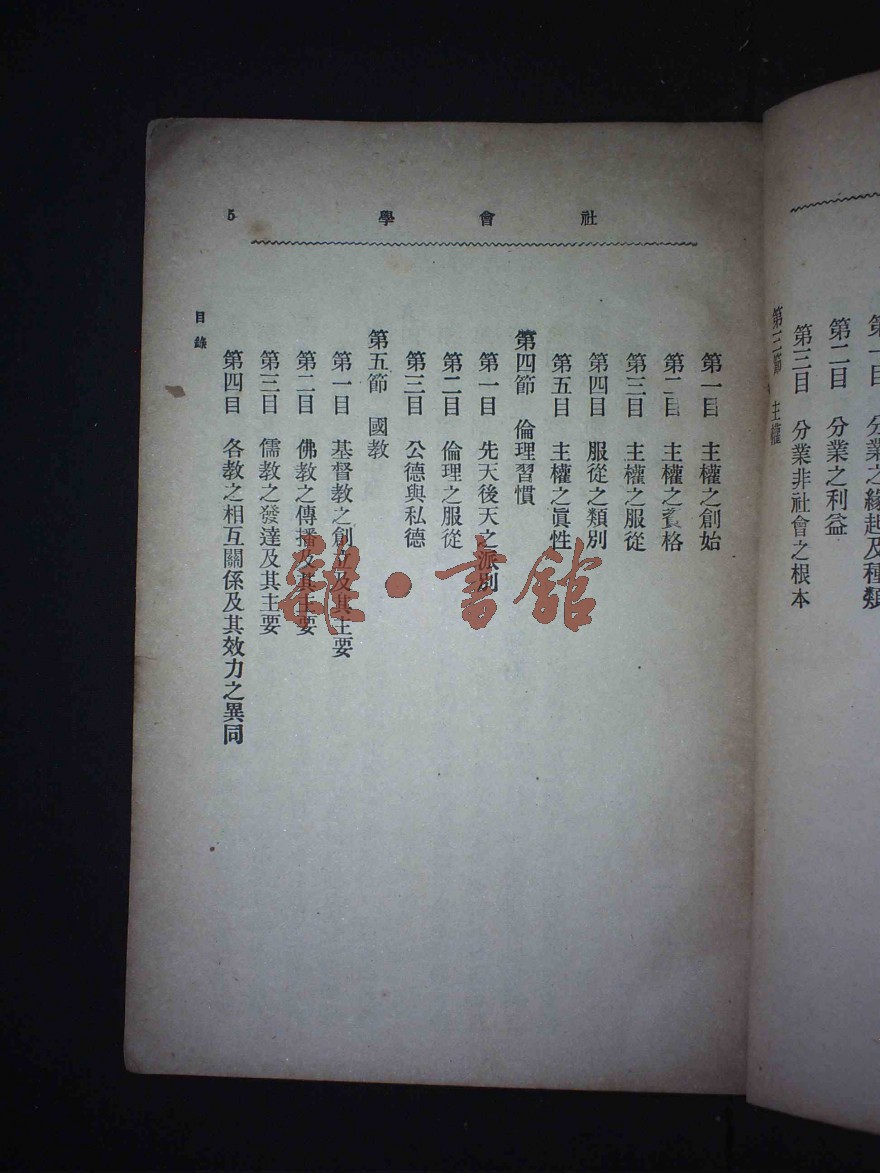 第一目　分業之緣起及種類
第二目　分業之利益
第三目　分業非社會之根本
第三節　主權
社會學
5
第一目　主權之創始
第二目　主權之資格
第三目　主權之服從
第四目　服從之類別
第五目　主權之眞性
第四節　倫理習慣
第一目　先天後天之派別
第二目　倫理之服從
第三目　公德與私德
第五節　國教
第一目　基督教之創立及其主要
第二目　佛教之傳播及其主要
第三目　儒教之發達及其主要
第四目　各教之相互關係及其效力之異同
目錄
雜·書館